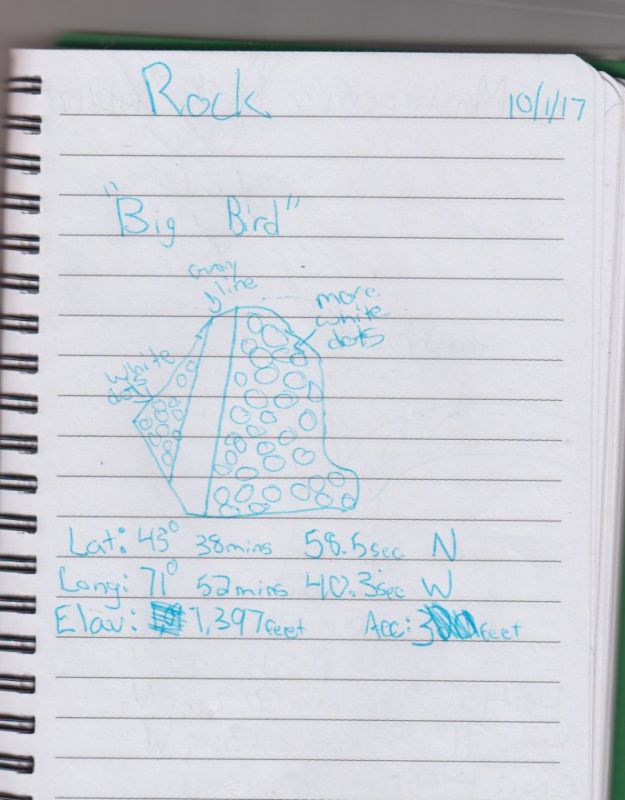 Rock 10/1/17
"Big Bird"
gray
line
more
white
dots
white
dots
Lat: 43° 38mins 58.5sec N
Long: 71° 52mins 40.3sec W
Elav: 1,397feet Acc: feet